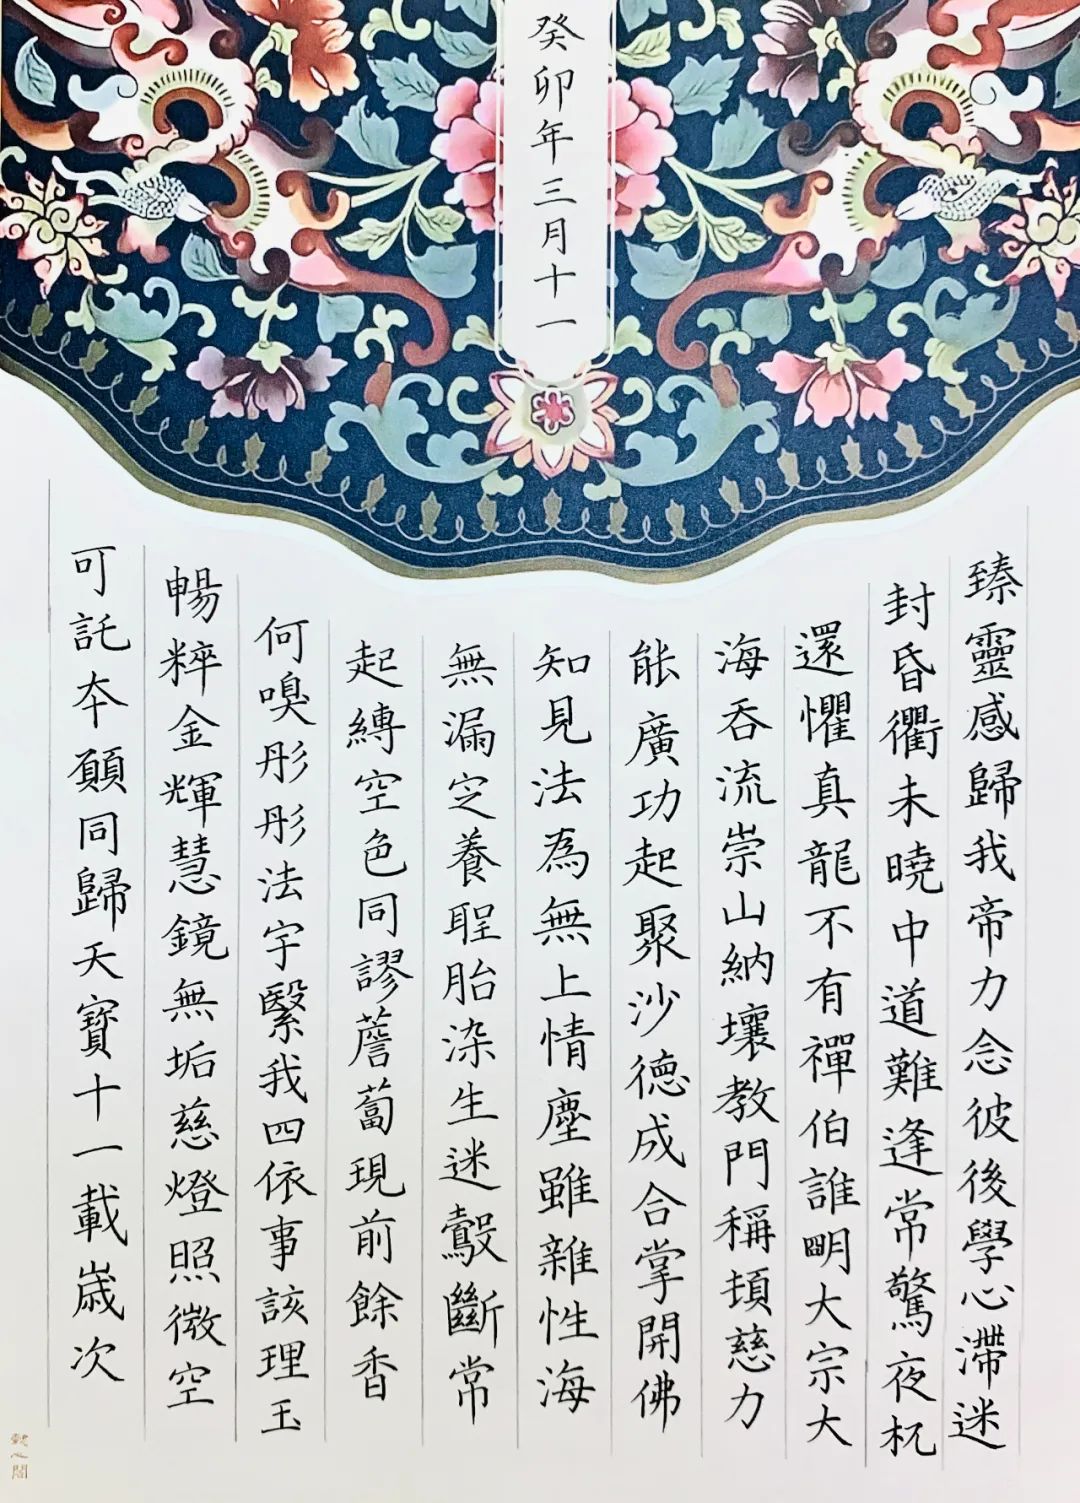 癸卯年三月十一
臻靈感歸我帝力念彼後學心滯迷
封昏衢未曉中道難逢常驚夜杌
還懼真龍不有禪伯誰朙大宗大
海吞流崇山納壤教門稱頓慈力
能廣功起聚沙德成合掌開佛
知見法為無上情塵雖雜性海
無漏定養聖胎染生迷鷇斷常
起縛空色同謬薝蔔現前餘香
何嗅彤彤法宇繄我四依事該理玉
暢粹金輝慧鏡無垢慈燈照微空
可託本願同歸天寶十一載歲次